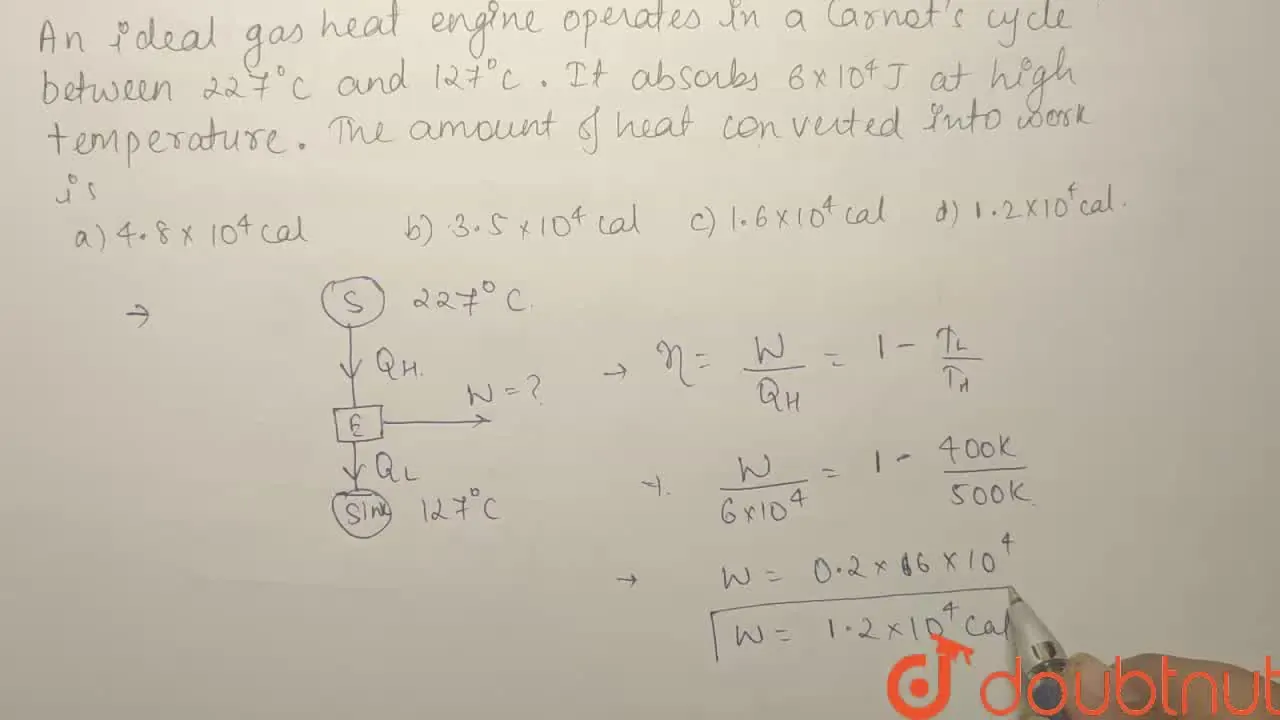 An ideal gas heat engine operates in a Carnot's cycle
between 227°C and 127°C. It absorbs 6×10⁴J at high
temperature. The amount of heat converted into work
is
a) 4.8 × 10⁴ cal b) 3.5 × 10⁴ cal c) 1.6 × 10⁴ cal d) 1.2 × 10⁴ cal.
→ S 227°C.
QH.
W = ?
→ η = W/QH = 1 - TL/TH
E
QL
→. W/6×10⁴ = 1 - 400K/500K
Sink 127°C
→ W = 0.2 × 6 × 10⁴
W = 1.2 × 10⁴ cal
doubtnut